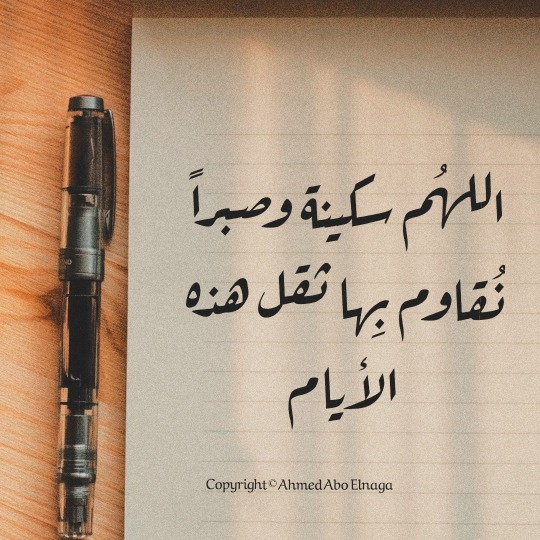 اللهُم سكينة وصبراً
نُقاوم بِها ثقل هذه
الأيام
Copyright © Ahmed Abo Elnaga